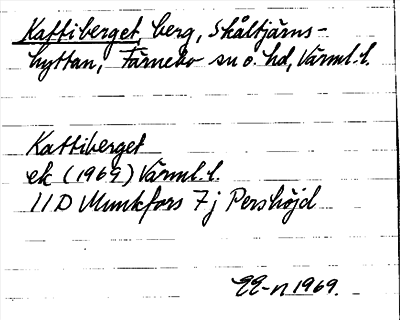 Kattiberget, berg, Skåltjärns-
hyttan, Färnebo sn o. hd, Värml. l.
Kattiberget
ek (1969) Värml. l.
11D Munkfors 7j Pershöjd
1969.